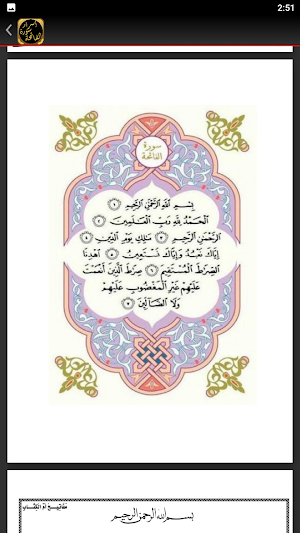 2:51
أسرار سورة الفاتحة
سورة
الفاتحة
بِسْمِ ٱللَّهِ ٱلرَّحْمَٰنِ ٱلرَّحِيمِ ١
ٱلْحَمْدُ لِلَّهِ رَبِّ ٱلْعَٰلَمِينَ ٢
ٱلرَّحْمَٰنِ ٱلرَّحِيمِ ٣ مَٰلِكِ يَوْمِ ٱلدِّينِ ٤
إِيَّاكَ نَعْبُدُ وَإِيَّاكَ نَسْتَعِينُ ٥ ٱهْدِنَا
ٱلصِّرَٰطَ ٱلْمُسْتَقِيمَ ٦ صِرَٰطَ ٱلَّذِينَ أَنْعَمْتَ
عَلَيْهِمْ غَيْرِ ٱلْمَغْضُوبِ عَلَيْهِمْ
وَلَا ٱلضَّآلِّينَ ٧
مفاتيح أم الكتاب
بسم الله الرحمن الرحيم